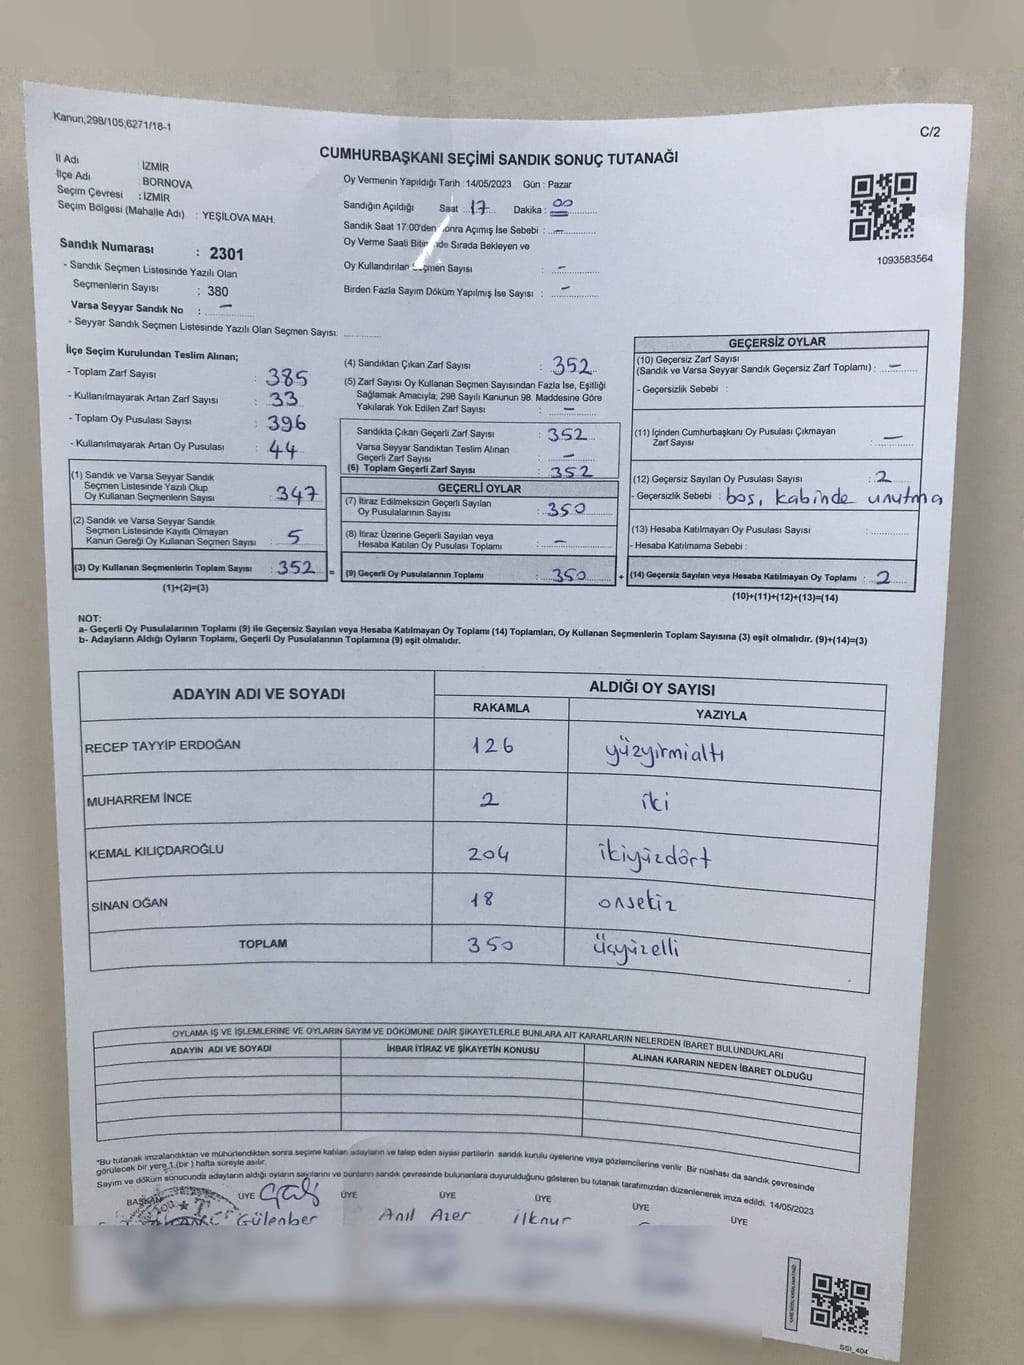 Kanun;298/105,6271/18-1
C/2
CUMHURBAŞKANI SEÇİMİ SANDIK SONUÇ TUTANAĞI
İl Adı : İZMİR
İlçe Adı : BORNOVA
Seçim Çevresi : İZMİR
Seçim Bölgesi (Mahalle Adı) : YEŞİLOVA MAH.
Sandık Numarası : 2301
- Sandık Seçmen Listesinde Yazılı Olan
Seçmenlerin Sayısı : 380
Varsa Seyyar Sandık No : -
- Seyyar Sandık Seçmen Listesinde Yazılı Olan Seçmen Sayısı:
Oy Vermenin Yapıldığı Tarih : 14/05/2023 Gün : Pazar
Sandığın Açıldığı Saat : 17 Dakika : 00
Sandık Saat 17:00'den Sonra Açımış İse Sebebi : -
Oy Verme Saati Sırada Bekleyen ve
Oy Kullandırılan Seçmen Sayısı : -
Birden Fazla Sayım Döküm Yapılmış İse Sayısı : -
1093583564
İlçe Seçim Kurulundan Teslim Alınan;
- Toplam Zarf Sayısı : 385
- Kullanılmayarak Artan Zarf Sayısı : 33
- Toplam Oy Pusulası Sayısı : 396
- Kullanılmayarak Artan Oy Pusulası : 44
(1) Sandık ve Varsa Seyyar Sandık
Seçmen Listesinde Yazılı Olup
Oy Kullanan Seçmenlerin Sayısı : 347
(2) Sandık ve Varsa Seyyar Sandık
Seçmen Listesinde Kayıtlı Olmayan
Kanun Gereği Oy Kullanan Seçmen Sayısı : 5
(3) Oy Kullanan Seçmenlerin Toplam Sayısı : 352
(1)+(2)=(3)
(4) Sandıktan Çıkan Zarf Sayısı : 352
(5) Zarf Sayısı Oy Kullanan Seçmen Sayısından Fazla İse, Eşitliği
Sağlamak Amacıyla; 298 Sayılı Kanunun 98. Maddesine Göre
Yakılarak Yok Edilen Zarf Sayısı : -
Sandıkta Çıkan Geçerli Zarf Sayısı : 352
Varsa Seyyar Sandıktan Teslim Alınan
Geçerli Zarf Sayısı : -
(6) Toplam Geçerli Zarf Sayısı : 352
GEÇERLİ OYLAR
(7) İtiraz Edilmeksizin Geçerli Sayılan
Oy Pusulalarının Sayısı : 350
(8) İtiraz Üzerine Geçerli Sayılan veya
Hesaba Katılan Oy Pusulası Toplamı : -
= (9) Geçerli Oy Pusulalarının Toplamı : 350 +
GEÇERSİZ OYLAR
(10) Geçersiz Zarf Sayısı
(Sandık ve Varsa Seyyar Sandık Geçersiz Zarf Toplamı) : -
- Geçersizlik Sebebi :
(11) İçinden Cumhurbaşkanı Oy Pusulası Çıkmayan
Zarf Sayısı : -
(12) Geçersiz Sayılan Oy Pusulası Sayısı : 2
- Geçersizlik Sebebi : boş, kabinde unutma
(13) Hesaba Katılmayan Oy Pusulası Sayısı :
- Hesaba Katılmama Sebebi :
(14) Geçersiz Sayılan veya Hesaba Katılmayan Oy Toplamı : 2
(10)+(11)+(12)+(13)=(14)
NOT:
a- Geçerli Oy Pusulalarının Toplamı (9) ile Geçersiz Sayılan veya Hesaba Katılmayan Oy Toplamı (14) Toplamları, Oy Kullanan Seçmenlerin Toplam Sayısına (3) eşit olmalıdır. (9)+(14)=(3)
b- Adayların Aldığı Oyların Toplamı, Geçerli Oy Pusulalarının Toplamına (9) eşit olmalıdır.
ADAYIN ADI VE SOYADI ALDIĞI OY SAYISI
RAKAMLA YAZIYLA
RECEP TAYYİP ERDOĞAN 126 yüzyirmialtı
MUHARREM İNCE 2 iki
KEMAL KILIÇDAROĞLU 204 ikiyüzdört
SİNAN OĞAN 18 onsekiz
TOPLAM 350 üçyüzelli
OYLAMA İŞ VE İŞLEMLERİNE VE OYLARIN SAYIM VE DÖKÜMÜNE DAİR ŞİKAYETLERLE BUNLARA AİT KARARLARIN NELERDEN İBARET BULUNDUKLARI
ADAYIN ADI VE SOYADI İHBAR İTİRAZ VE ŞİKAYETİN KONUSU ALINAN KARARIN NEDEN İBARET OLDUĞU
*Bu tutanak imzalandıktan ve mühürlendikten sonra seçime katılan adayların ve talep eden siyasi partilerin sandık kurulu üyelerine veya gözlemcilerine verilir. Bir nüshası da sandık çevresinde
görülecek bir yere 1 (bir) hafta süreyle asılır.
Sayım ve döküm sonucunda adayların aldığı oyların sayılarını ve bunların sandık çevresinde bulunanlara duyurulduğunu gösteren bu tutanak tarafımızdan düzenlenerek imza edildi. 14/05/2023
BAŞKAN ÜYE ÜYE ÜYE ÜYE ÜYE ÜYE
Gülenber Anıl Azer ilknur
SSI_404